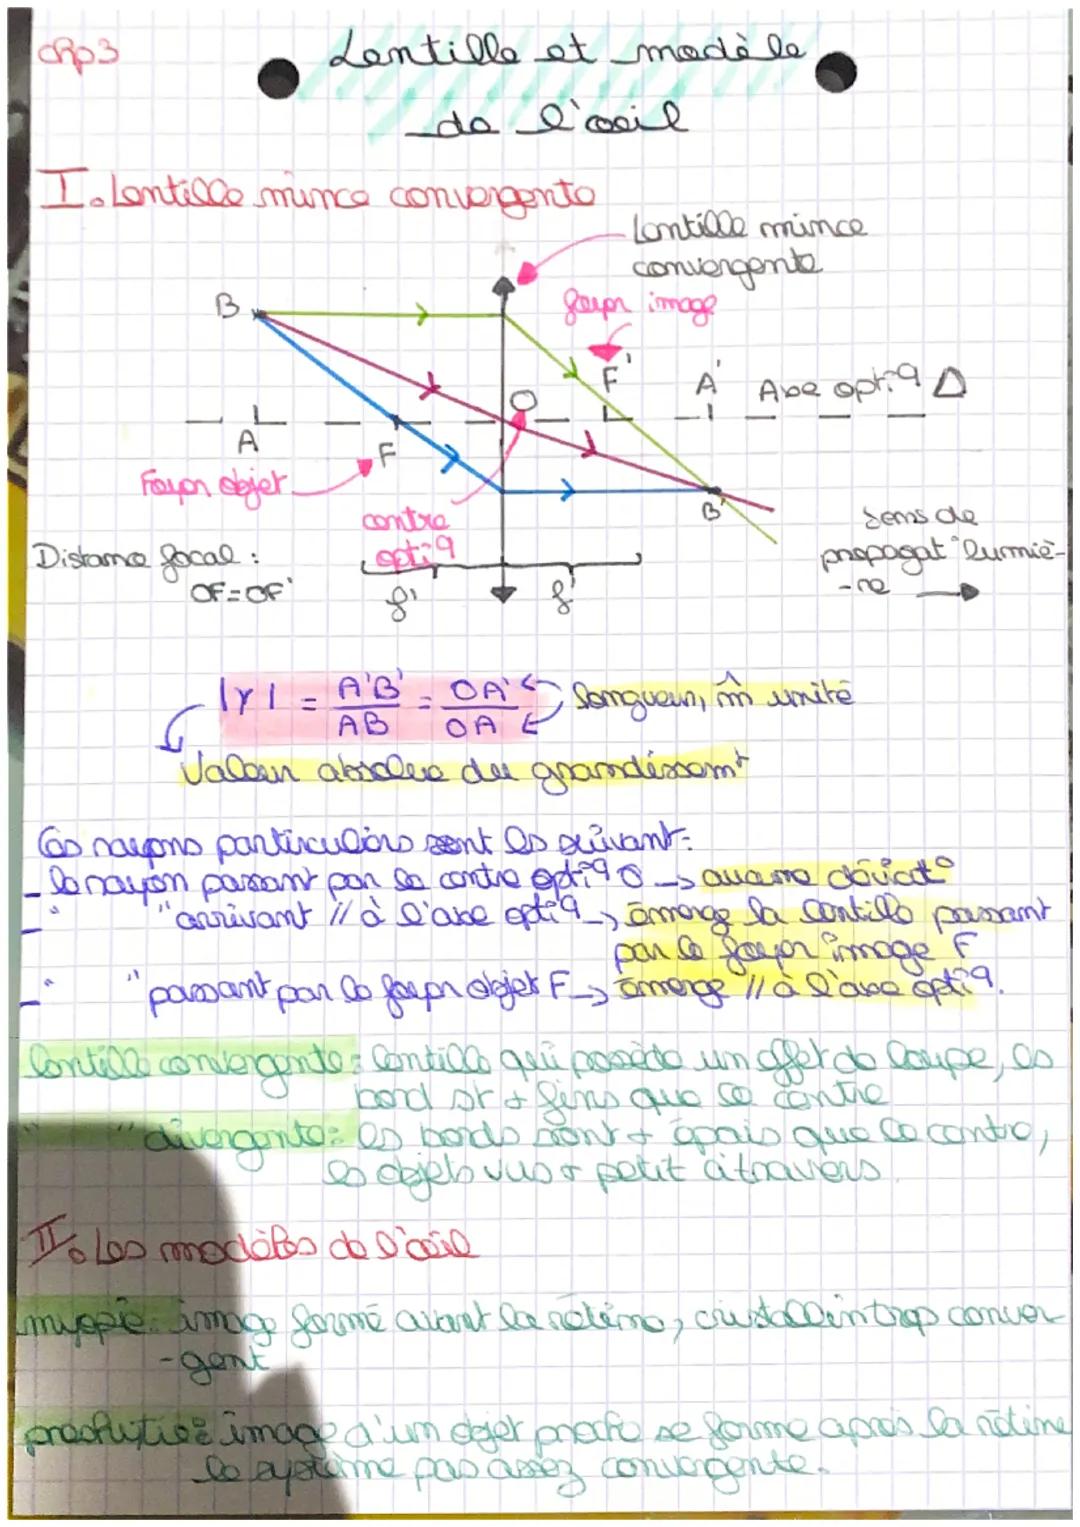 chp3
Lentille et modèle
de l'oeil
I. Lentille mince convergente
Lentille mince
convergente
foyer image
B
F'
A'
Axe opti q Δ
O
A
F
Foyer objet
centre
opti q
B'
Sens de
propagat° lumiè-
-re
Distance focal :
OF=OF'
f'
f'
|γ| = A'B'/AB = OA'/OA longueur, m̂ unité
Valeur absolue du grandissemt
Les rayons particuliers sont les suivant:
- le rayon passant par le centre opti q O → aucune déviat°
- " " arrivant // à l'axe opti q → émerge la lentille passant
par le foyer image F
- " " passant par le foyer objet F → émerge // à l'axe opti q.
lentille convergente: lentille qui possède un effet de loupe, les
bord st + fins que le centre
" " divergente: les bords sont + épais que le centre,
les objets vus + petit à travers.
II. Les modèles de l'oeil
myopie: image formé avant la rétine, cristallin trop conver-
-gent
presbytie: image d'un objet proche se forme après la rétine
le système pas assez convergente.